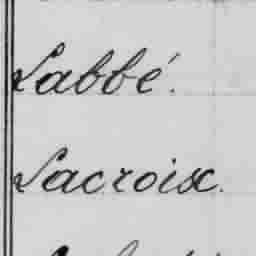 Labbé.
Lacroix.